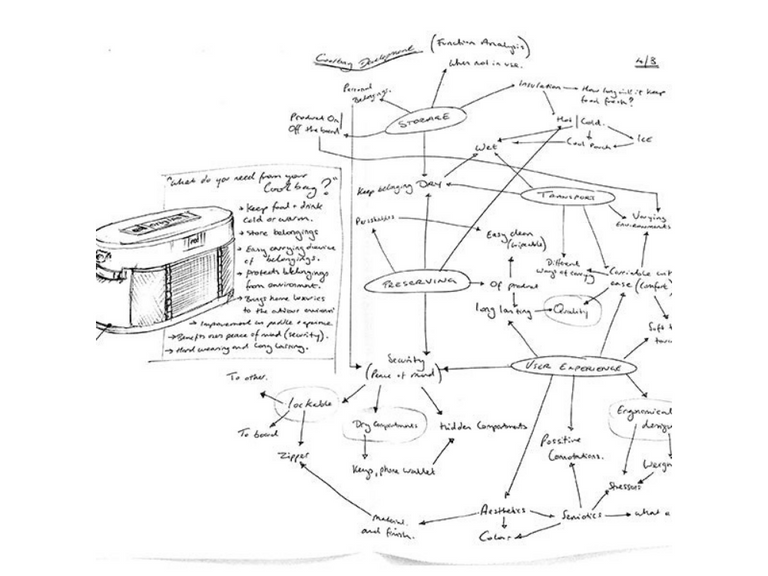 Coolbag Development (Function Analysis)
4/3
When not in use.
Personal
Belongings.
Insulation
How long will it keep
food fresh?
Product On/
Off the board
STORAGE
Hot/Cold.
ICE
Cool Pouch
Wet
"What do you need from your
Coolbag?"
Keep food + drink
cold or warm.
Store belongings
Easy carrying
of belongings.
protects belongings
from environment.
Brings home luxuries
to the
Improvement on paddle experience
Benefits
peace of mind (security).
Hard wearing and long lasting.
Keep belonging DRY
TRANSPORT
Varying
Environments
Perishables
Easy clean
(wipeable)
Different
ways of carry
Carriable
ease (comfort
PRESERVING
Of product
long lasting
Quality
Soft t
Security
(Peace of mind)
USER EXPERIENCE
To other.
lockable
To board
Zipper
Dry Compartments
Hidden Compartments
Keys, phone wallet
Ergonomical
design
Possitive
Connotations.
Weight
Stressors
Aesthetics
Semiotics
what
Material
and finish.
Color